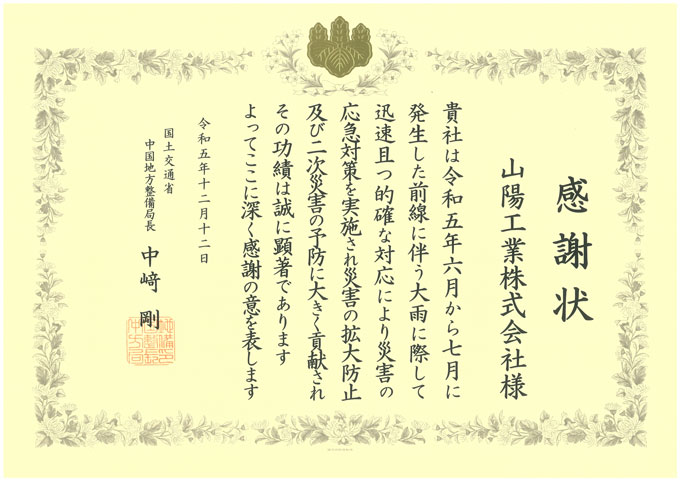 感謝状
山陽工業株式会社様
貴社は令和五年六月から七月に
発生した前線に伴う大雨に際して
迅速且つ的確な対応により災害の
応急対策を実施され災害の拡大防止
及び二次災害の予防に大きく貢献され
その功績は誠に顕著であります
よってここに深く感謝の意を表します
令和五年十二月十二日
国土交通省
中国地方整備局長
中﨑 剛